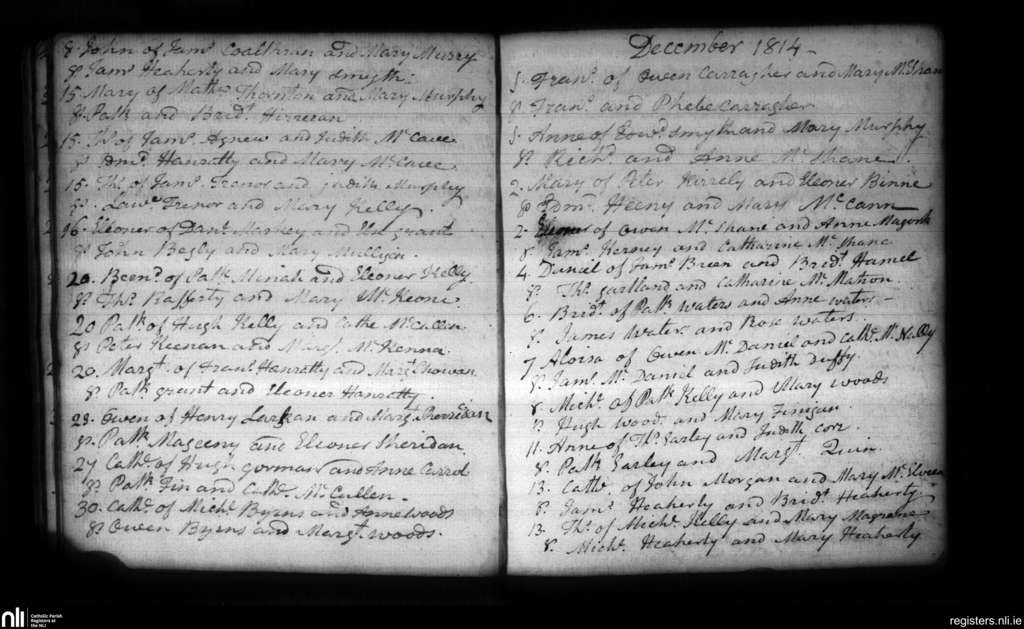 8. John of Jamˢ Coalhran and Mary Murry
Sᵖ Jamˢ Heaherty and Mary Smyth.
15. Mary of Mathᵛ Thornton and Mary Murphy
Sᵖ Patk and Bridᵗ
15. Thˢ of Jamˢ Agnew and Judith McCave
Sᵖ Edmᵈ Hanratty and Mary McCavee
15. Thˢ of Jamˢ Trenor and judith Murphy
Sᵖ Lawᵉ Trenor and Mary Kelly.
16. Eleoner of Danˡ Markey and grant
Sᵖ John Begly and Mary Mullyen.
20. of Patk and Eleoner Kelly
Sᵖ Thˢ Rafferty and Mary McKeone
20 Patk of Hugh Kelly and Cathe McCullen
Sᵖ Peter Keenan and Margᵗ McKenna.
20. Margᵗ of Franˢ Hanratty and Margᵗ
Sᵖ Patk grant and Eleoner Hanratty.
23. Owen of Henry Larkan and Margᵗ
Sᵖ Patk Mageeny and Eleoner Sheridan
27 Cathᵉ of Hugh gorman and Anne Carrol
Sᵖ Patk Fin and Cathᵉ McCullen.
30. Cathᵉ of Michˡ Byrns and Anne woods
Sᵖ Owen Byrns and Margᵗ woods.
December 1814
1. Franˢ of Owen Carragher and Mary
Sᵖ Franˢ and Phebe Carragher
1. Anne of Edwᵈ Smyth and Mary Murphy
Sᵖ Richᵈ and Anne McShane.
2. Mary of Peter and Eleoner Binne
Sᵖ Edmᵈ Heeny and Mary McCann
2. Eleoner of Owen McShane and Anne
Sᵖ Jamˢ Kerney and Catharine McShane
4. Daniel of Jamˢ Breen and Bridᵗ Hamel
Sᵖ Thˢ gartland and Catharine McMahon.
6. Bridᵗ of Patk Waters and Anne waters.
Sᵖ James Waters and Rose waters.
7 of Owen McDaniel and Cathᵉ McNally
Sᵖ Jamˢ McDaniel and Judith duffy.
8. Michˡ of Patk Kelly and Mary woods
Sᵖ Hugh Woods and Mary Finigan.
11. Anne of Thˢ Farley and Judith cor.
Sᵖ Patk Farley and Margᵗ Quin.
13. Cathᵉ of John Morgan and Mary
Sᵖ Jamˢ Heaherty and Bridᵗ Heaherty
13. Thˢ of Michˡ Kelly and Mary Magrane
Sᵖ Michˡ Heaherty and Mary Heaherty
nli Catholic Parish Registers at the NLI
registers.nli.ie